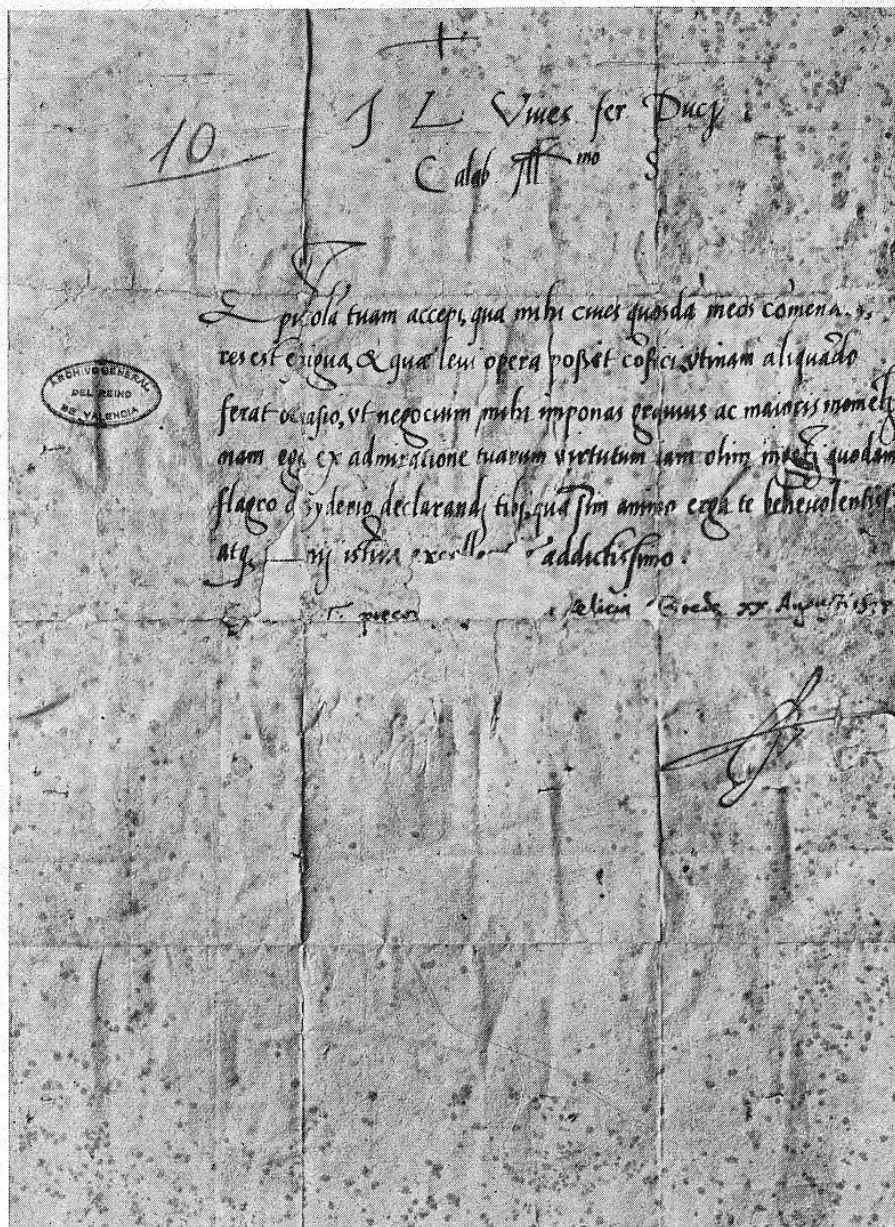 10
J L Viues fer Ducj
Calab Jll mo S
Epistola tuam accepi, qua mihi ciues quosdā meos cōmenda
res est exigua, & quæ leui opera possit cōfici, vtinam aliquādo
ferat occasio, vt negocium mihi imponas grauius ac maioris momēti
nam ego ex admiratione tuarum virtutum iam olim quodam
flagro declarandj tibi, quā sim animo erga te beneuolentiss
atq istiusa addictissimo.
T. precor Breda xx Augusti
ARCHIVO GENERAL
DEL REINO
DE VALENCIA